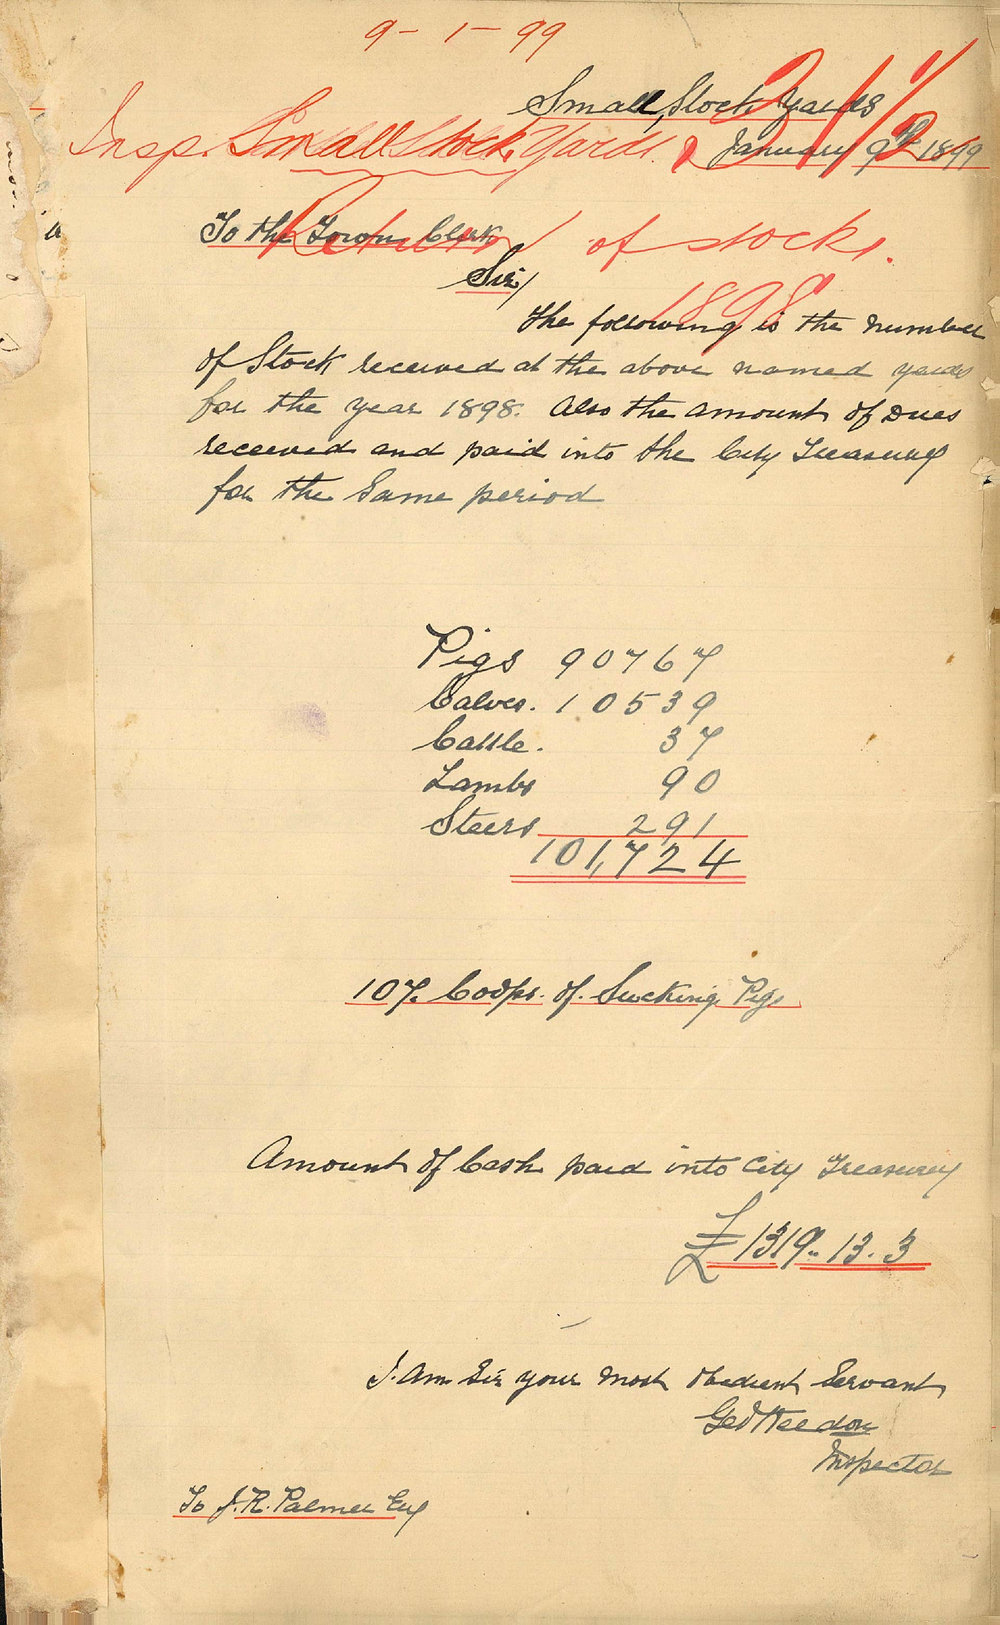 9-1-99
Small Stock Yards
Insp. Small Stock Yards.
January 9th 1899
To the Town Clerk
Return of stock.
Sir/
1898
The following is the number
of Stock received at the above named yards
for the year 1898. Also the amount of Dues
received and paid into the City Treasury
for the Same period
Pigs 90767
Calves. 10539
Cattle. 37
Lambs 90
Steers 291
101,724
107. Coops. of. Sucking Pigs
Amount of Cash paid into City Treasury
£1319..13.3
I. am Sir your most obedient Servant
Geo Weedon
Inspector
To J. R. Palmer Esq